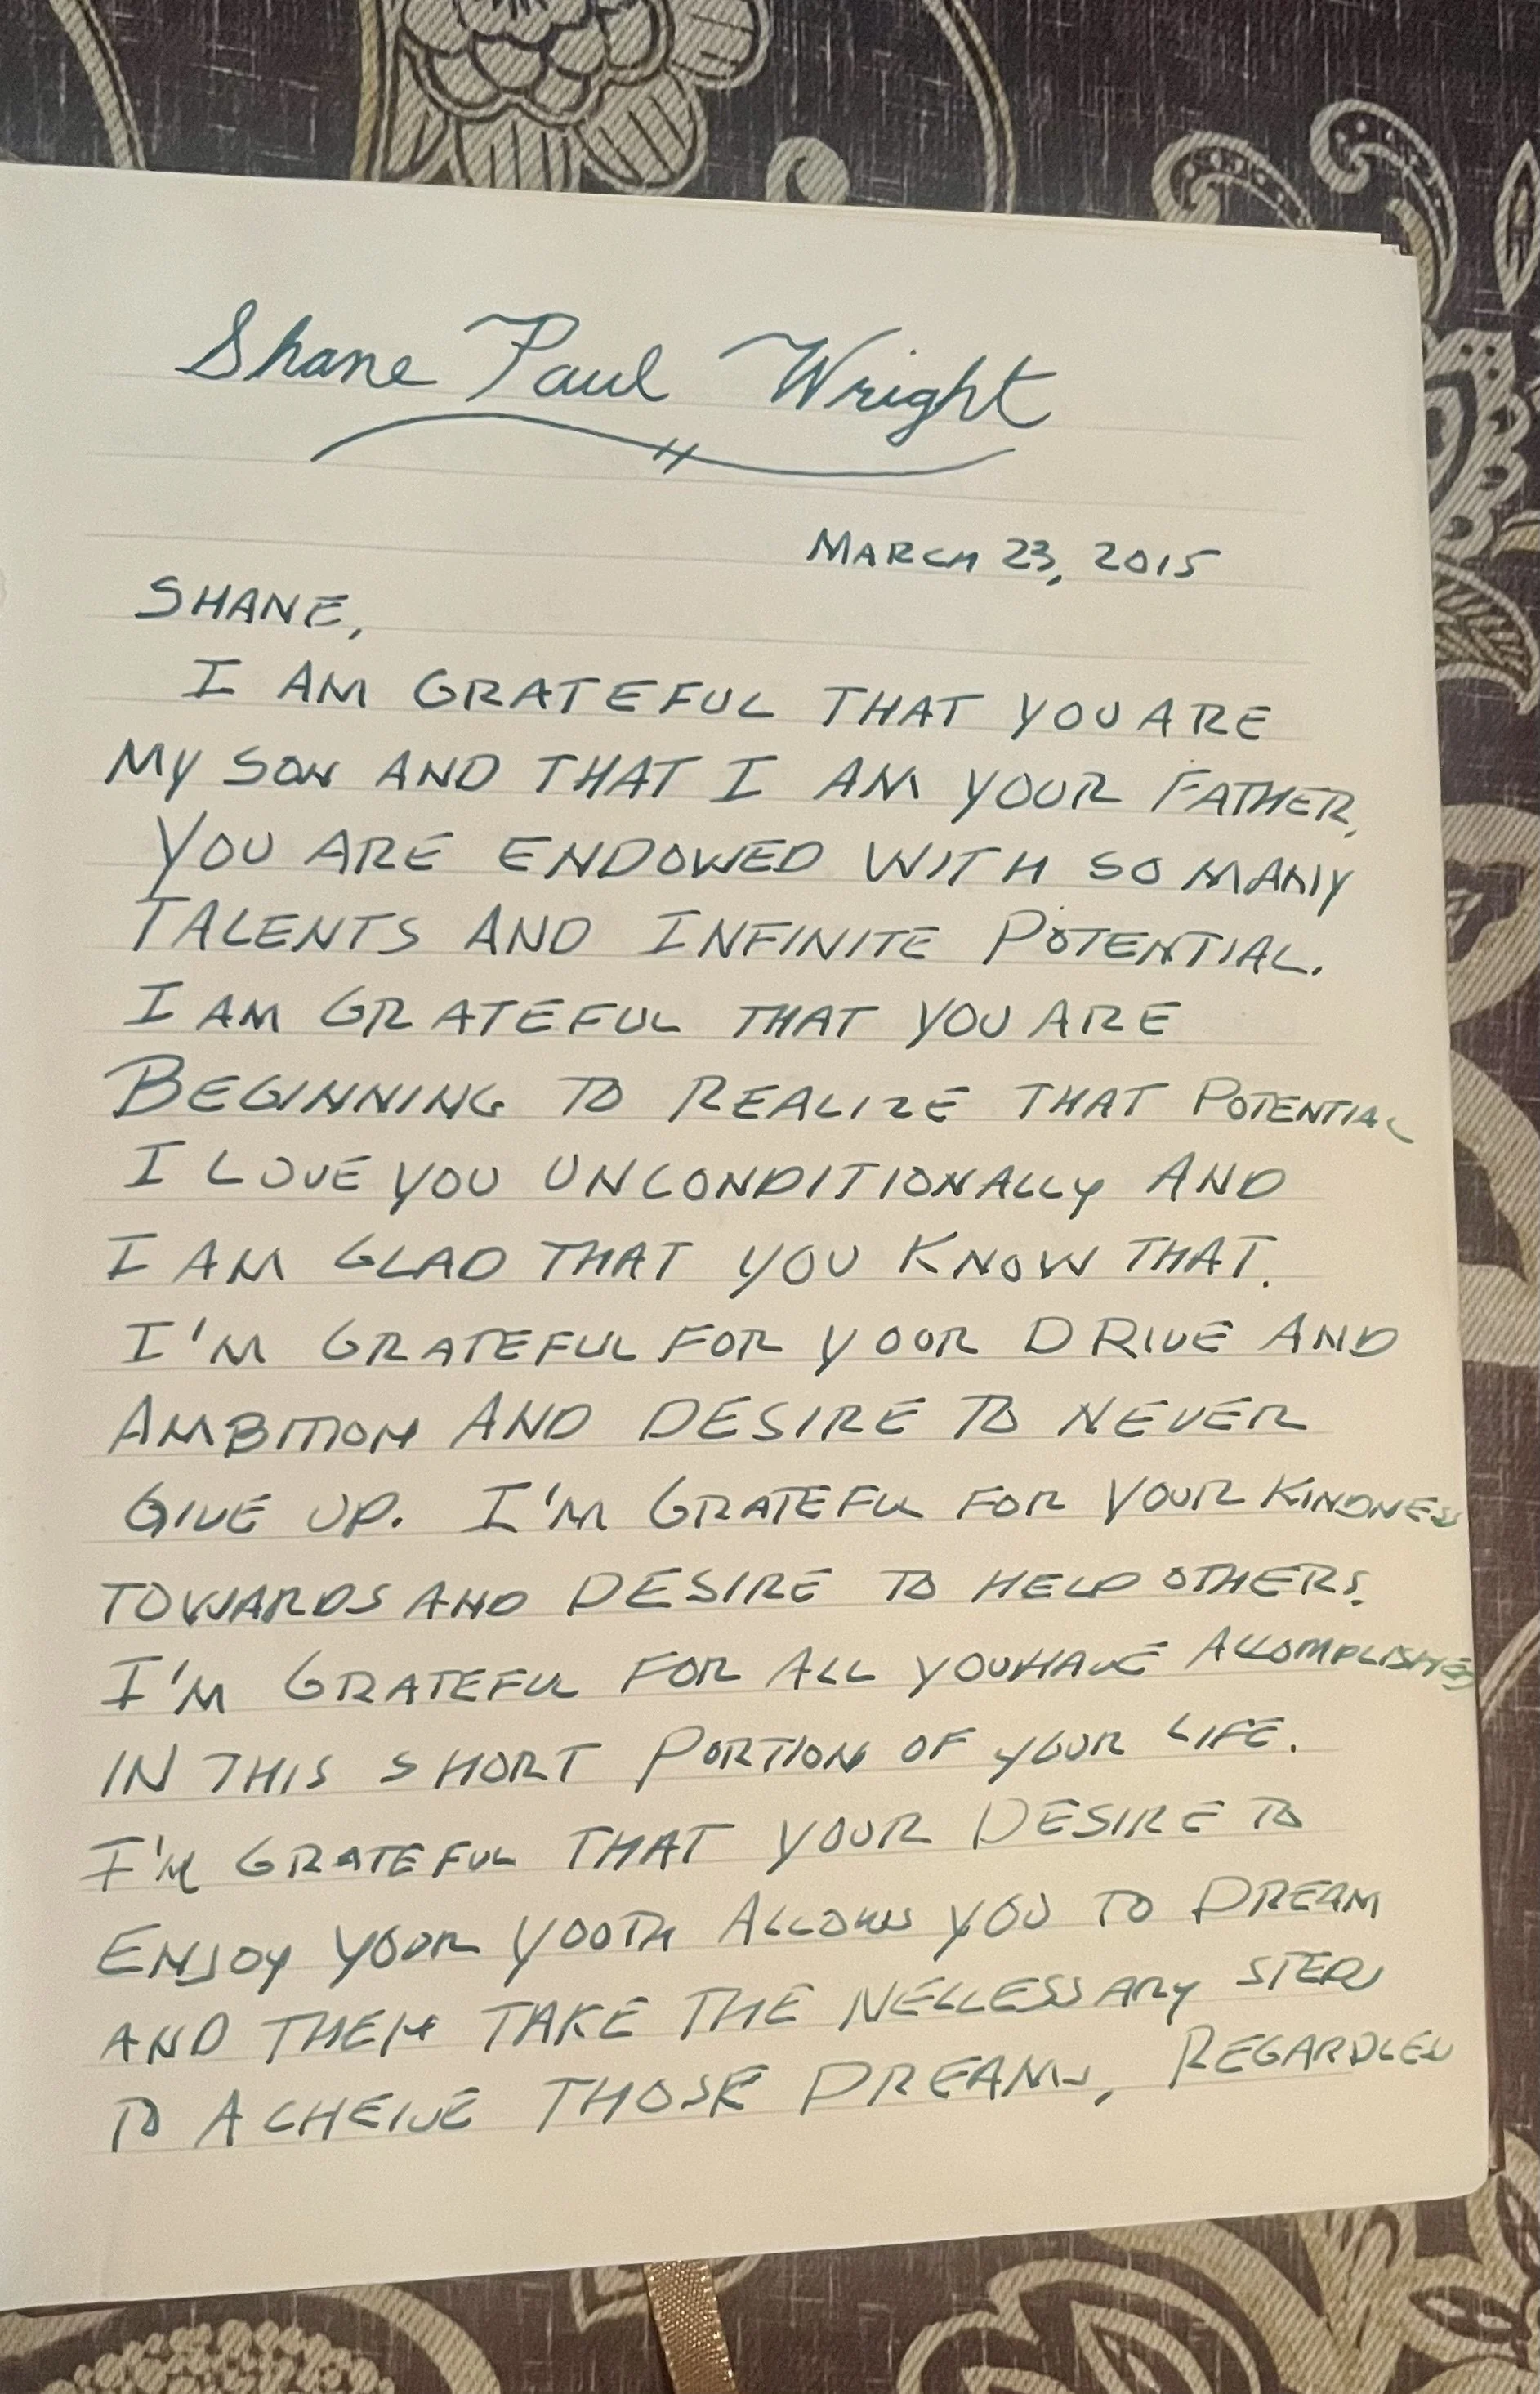 Shane Paul Wright
MARCH 23, 2015
SHANE,
I AM GRATEFUL THAT YOU ARE
MY SON AND THAT I AM YOUR FATHER.
YOU ARE ENDOWED WITH SO MANY
TALENTS AND INFINITE POTENTIAL.
I AM GRATEFUL THAT YOU ARE
BEGINNING TO REALIZE THAT POTENTIAL
I LOVE YOU UNCONDITIONALLY AND
I AM GLAD THAT YOU KNOW THAT.
I'M GRATEFUL FOR YOUR DRIVE AND
AMBITION AND DESIRE TO NEVER
GIVE UP. I'M GRATEFUL FOR YOUR KINDNESS
TOWARDS AND DESIRE TO HELP OTHERS.
I'M GRATEFUL FOR ALL YOU HAVE ACCOMPLISHED
IN THIS SHORT PORTION OF YOUR LIFE.
I'M GRATEFUL THAT YOUR DESIRE TO
ENJOY YOUR YOUTH ALLOWS YOU TO DREAM
AND THEN TAKE THE NECCESSARY STEPS
TO ACHEIVE THOSE DREAMS, REGARDLESS